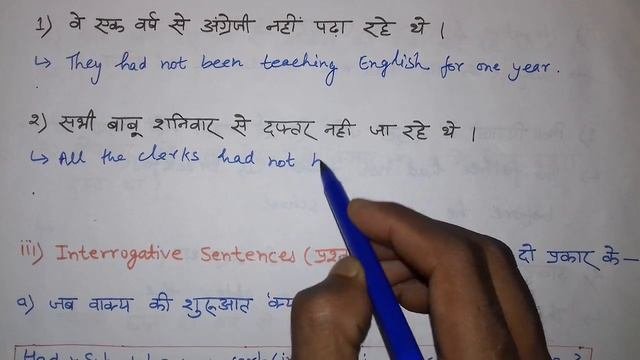 1) वे एक वर्ष से अंग्रेजी नहीं पढ़ा रहे थे ।
↳ They had not been teaching English for one year.
2) सभी बाबू शनिवार से दफ्तर नही जा रहे थे ।
↳ All the clerks had not
iii) Interrogative Sentences ( दो प्रकार के—
a) जब वाक्य की शुरुआत